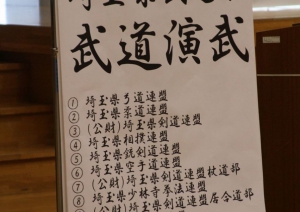 武道演武
① 埼玉県弓道連盟
② 埼玉県柔道連盟
③ (公財)埼玉県剣道連盟
④ 埼玉県相撲連盟
⑤ 埼玉県銃剣道連盟
⑥ 埼玉県空手道連盟
⑦ (公財)埼玉県剣道連盟杖道部
⑧ 埼玉県少林寺拳法連盟
(公財)埼玉県剣道連盟居合道部